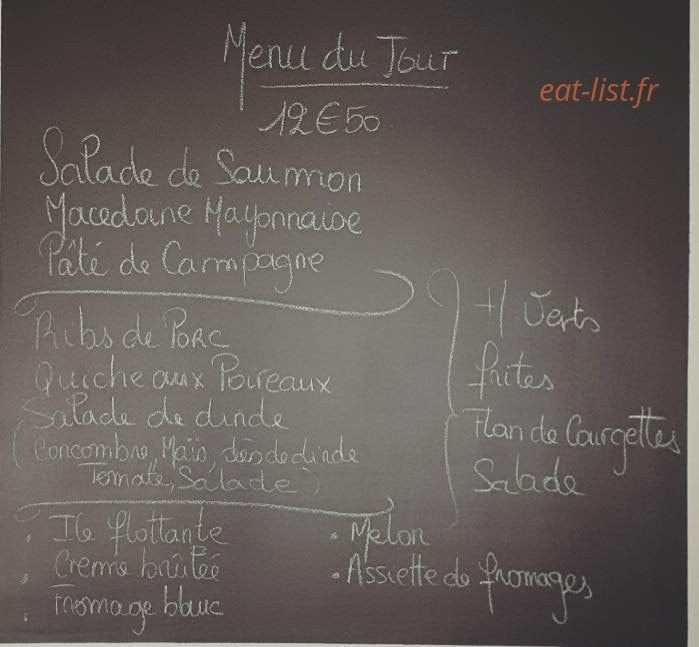 Menu du Jour
eat-list.fr
12€50
Salade de Saumon
Macedoine Mayonnaise
Pâté de Campagne
Ribs de Porc
Quiche aux Poireaux
Salade de dinde
(Concombre, Maïs, dès de dinde
Tomate, Salade)
H Verts
frites
Flan de Courgettes
Salade
. Ile flottante
. Creme brûlée
. Fromage blanc
. Melon
. Assiette de fromages